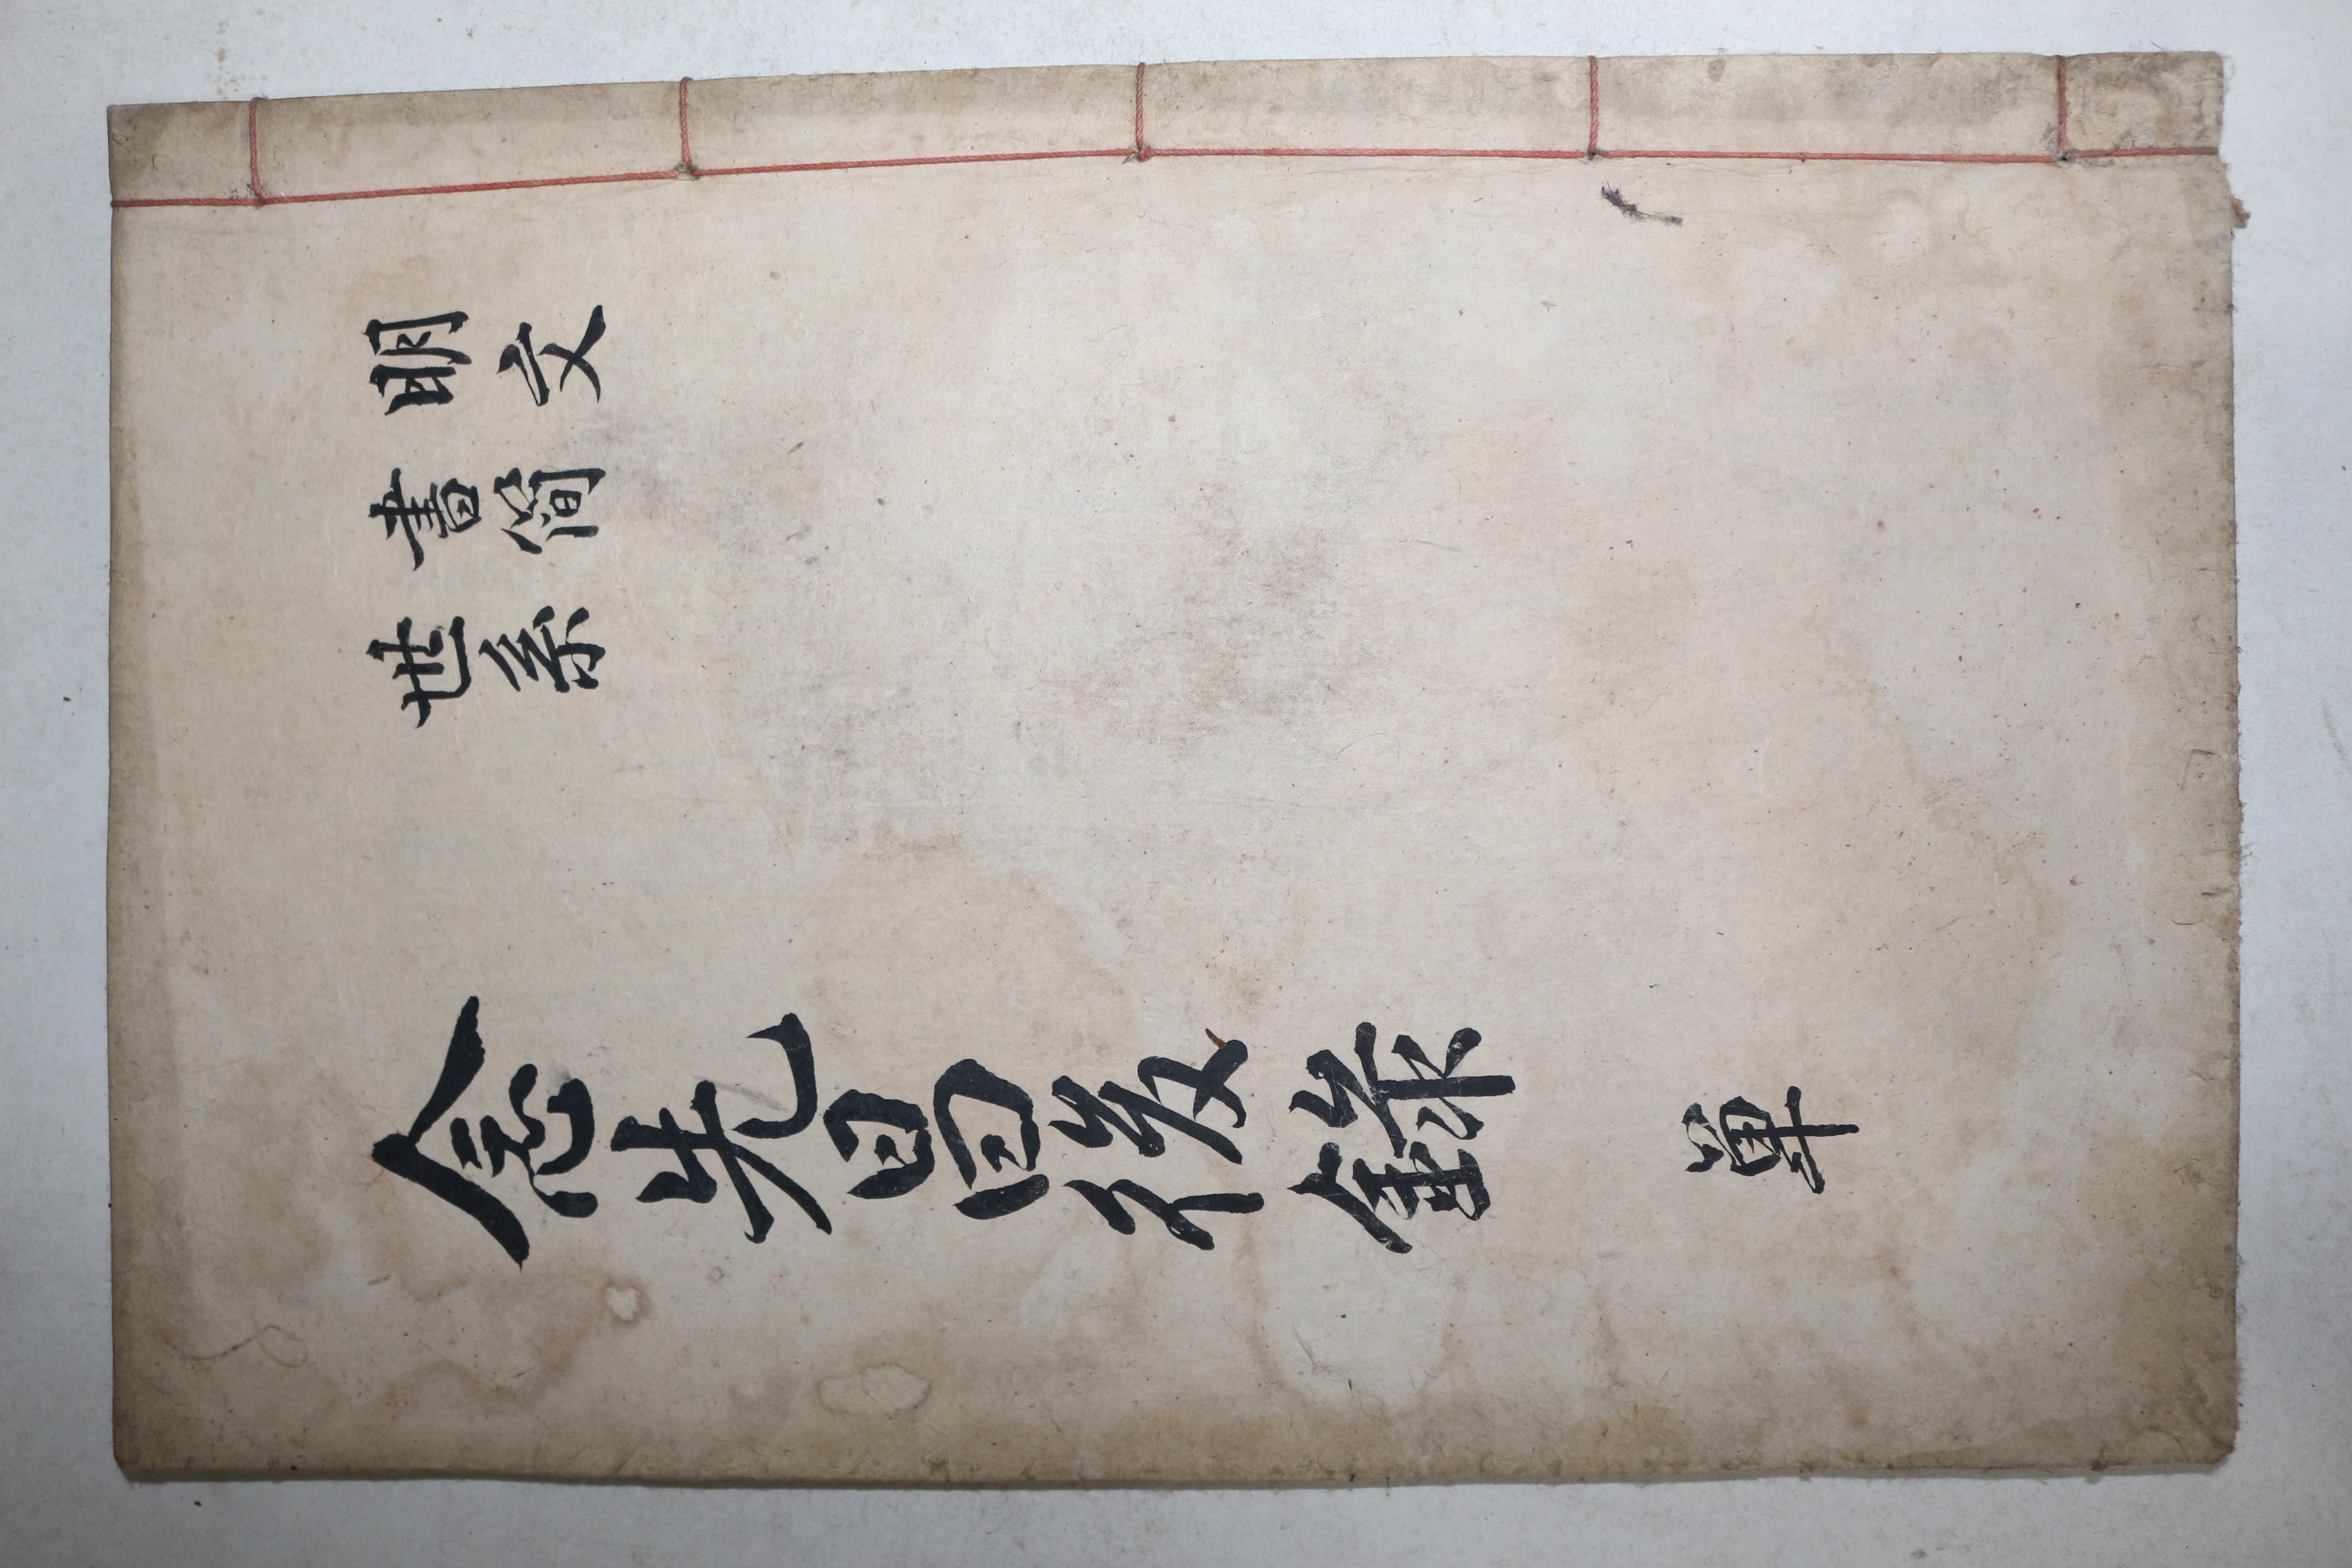 明文
書簡
世系
念先昌後錄
単